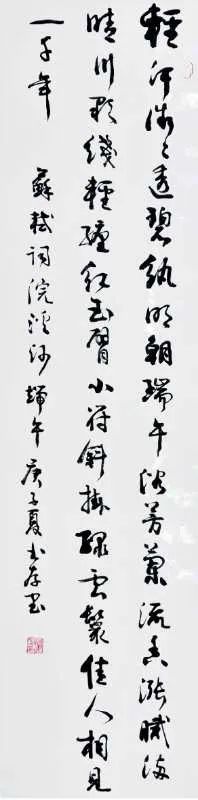 輕汗微々透碧紈明朝端午浴芳蘭流香漲膩滿
晴川彩線輕纏紅玉臂小符斜掛綠云鬟佳人相見
一千年 蘇軾詞浣溪沙端午 庚子夏書